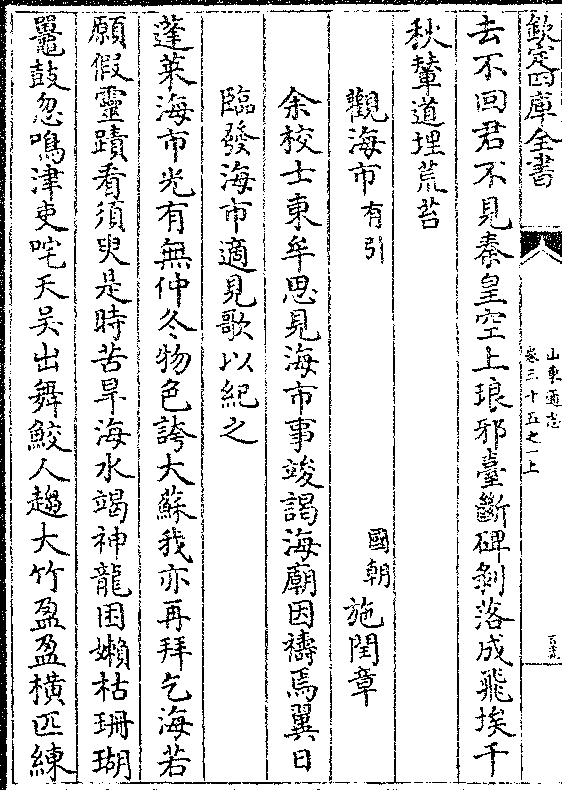 欽定四庫全書
山東通志
卷三十五之一上
去不回君不見秦皇空上琅邪臺斷碑剝落成飛埃千
秋輦道埋荒苔
觀海市有引
國朝施閏章
余校士東牟思見海市事竣謁海廟因禱焉翼日
臨發海市適見歌以紀之
蓬萊海市光有無仲冬物色誇大蘇我亦再拜乞海若
願假靈蹟看須臾是時苦旱海水竭神龍困嬾枯珊瑚
鼉鼓忽鳴津吏咤天吳出舞鮫人趨大竹盈盈橫匹練